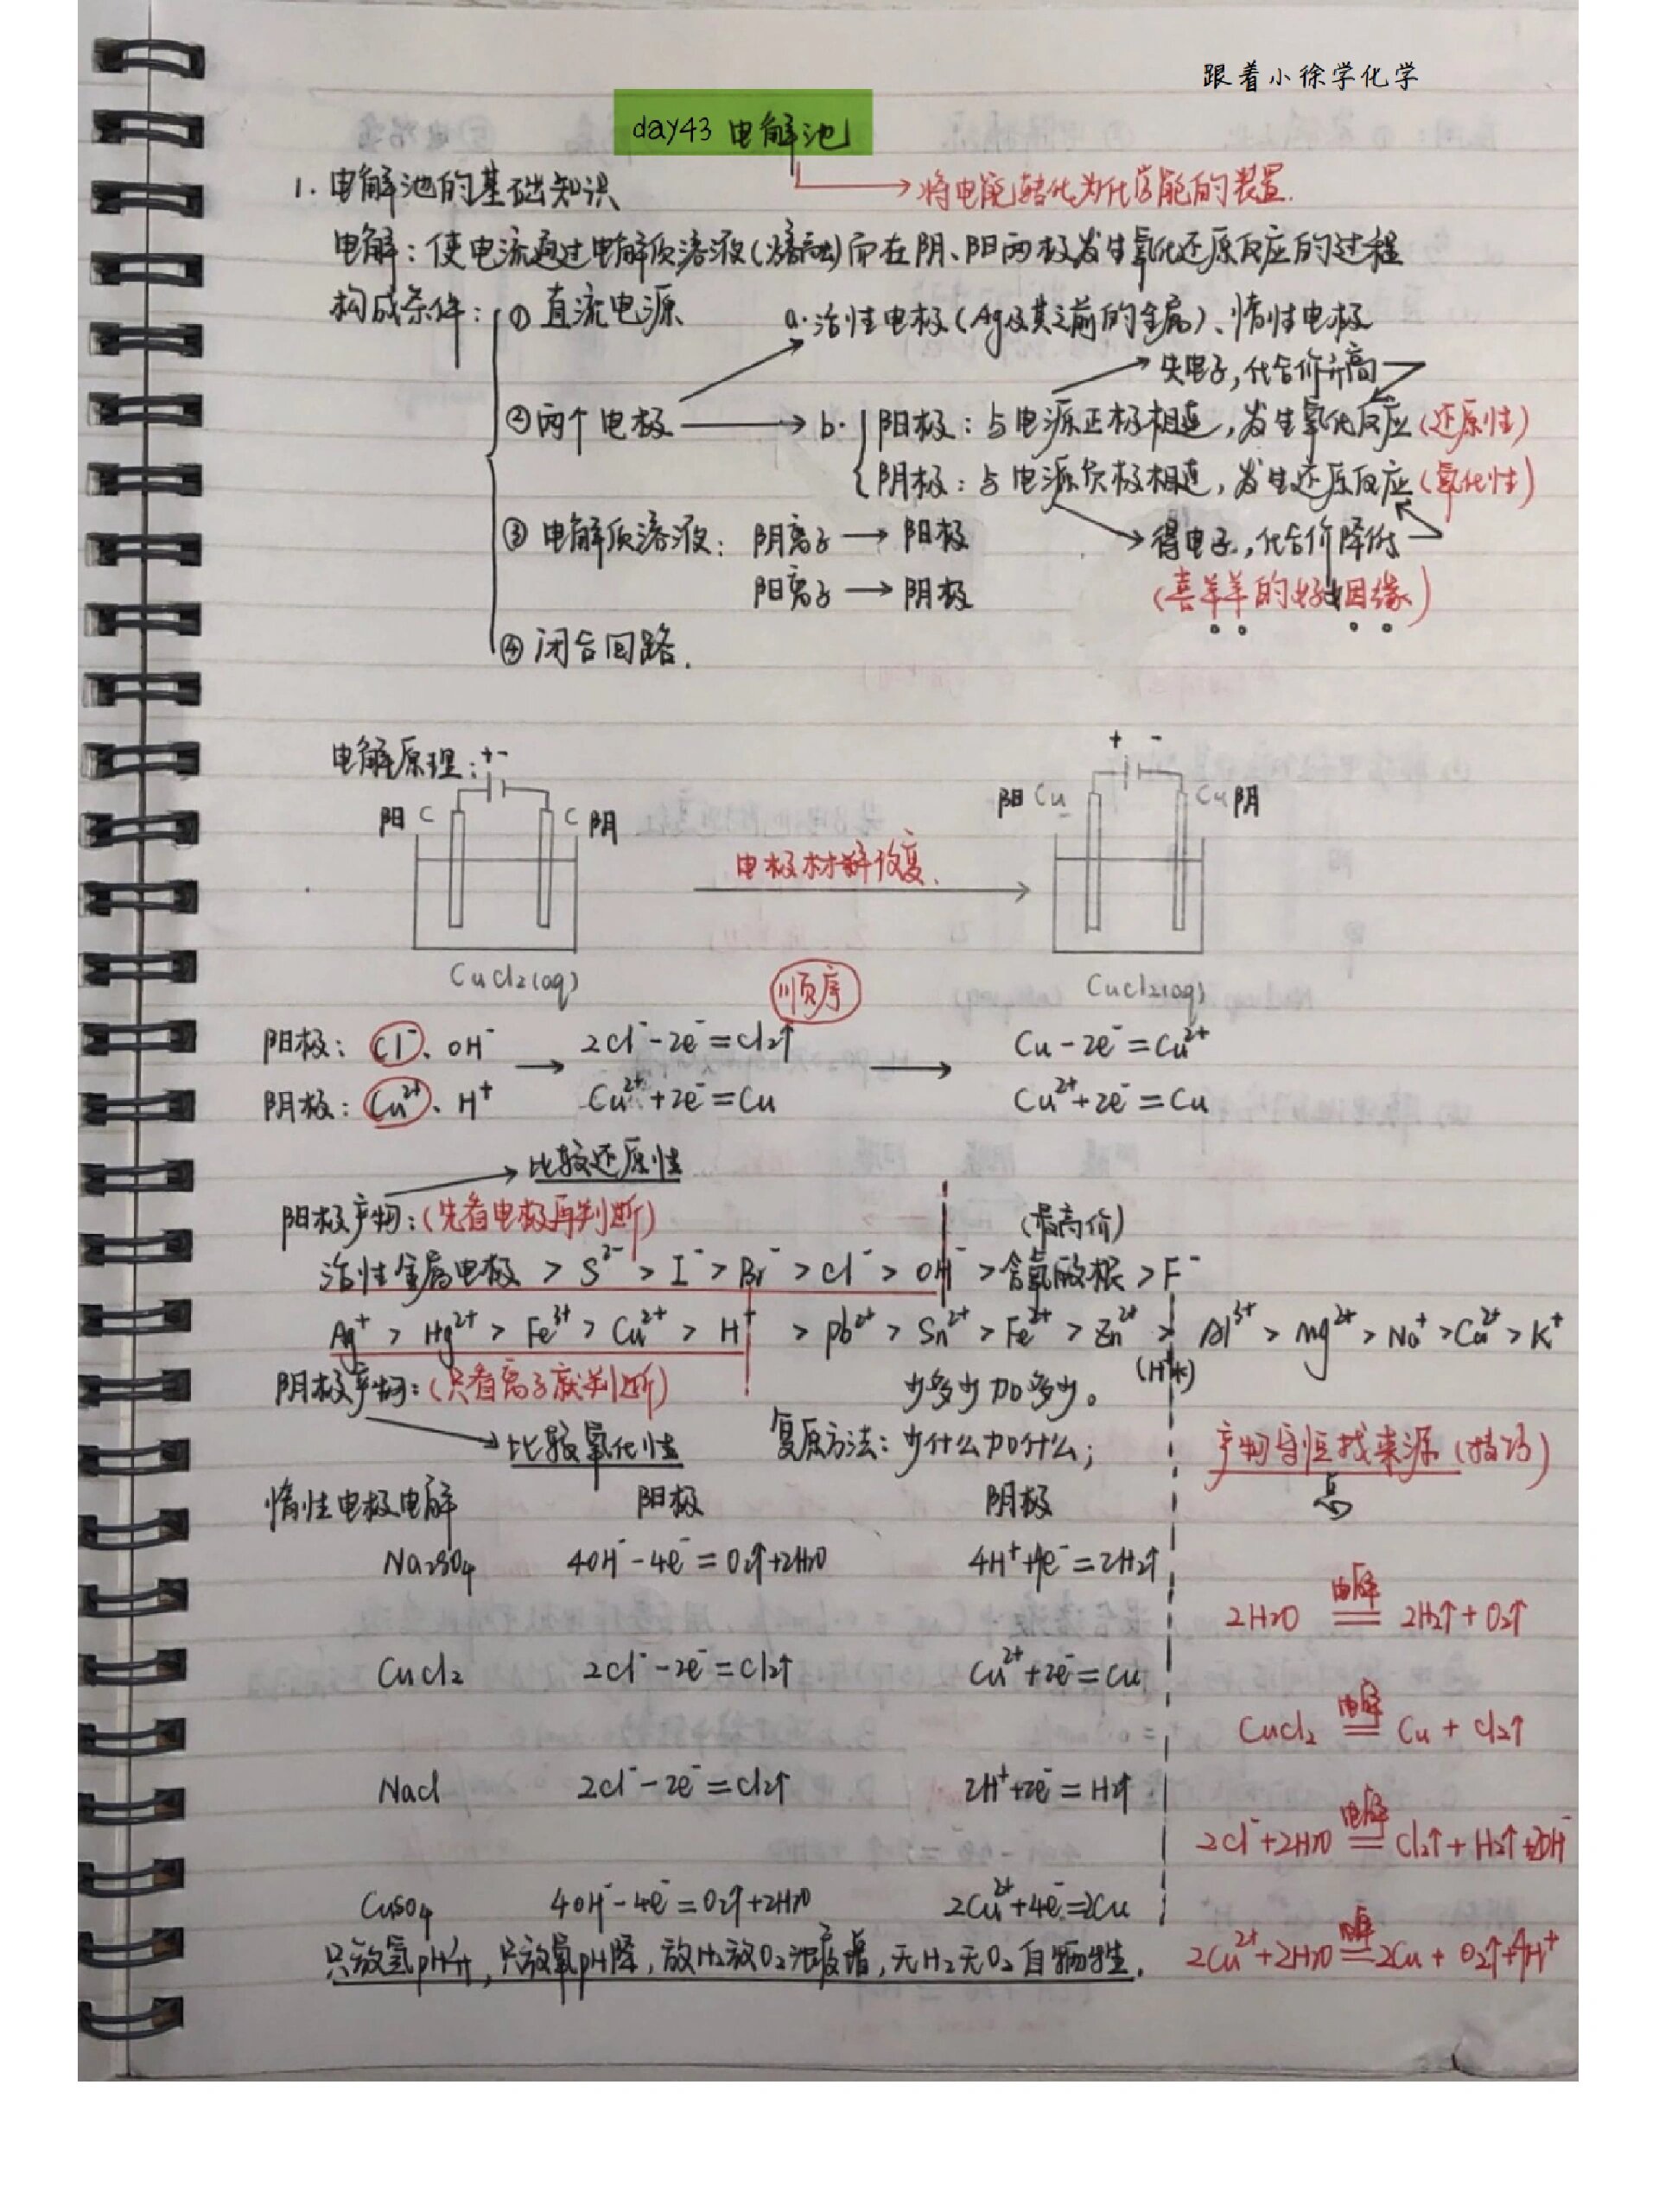 跟着小徐学化学
day43 电解池
1. 电解池的基础知识 → 将电能转化为化学能的装置.
电解：使电流通过电解质溶液(熔融)而在阴、阳两极发生氧化还原反应的过程
构成条件：① 直流电源 a. 活性电极(Ag及其之前的金属)、惰性电极
失电子，化合价升高
② 两个电极 → b. 阳极：与电源正极相连，发生氧化反应(还原性)
阴极：与电源负极相连，发生还原反应(氧化性)
③ 电解质溶液：阴离子 → 阳极 得电子，化合价降低
阳离子 → 阴极 (喜羊羊的好姻缘)
④ 闭合回路.
电解原理： + - + -
阳 C C 阴 阳 Cu Cu 阴
电极材料改变.
CuCl₂(aq) 顺序 CuCl₂(aq)
阳极：Cl⁻、OH⁻ → 2Cl⁻-2e⁻=Cl₂↑ → Cu-2e⁻=Cu²⁺
阴极：Cu²⁺、H⁺ Cu²⁺+2e⁻=Cu Cu²⁺+2e⁻=Cu
→ 比较还原性
阳极产物：(先看电极再判断) (最高价)
活性金属电极 > S²⁻ > I⁻ > Br⁻ > Cl⁻ > OH⁻ > 含氧酸根 > F⁻
Ag⁺ > Hg²⁺ > Fe³⁺ > Cu²⁺ > H⁺ > Pb²⁺ > Sn²⁺ > Fe²⁺ > Zn²⁺ > Al³⁺ > Mg²⁺ > Na⁺ > Ca²⁺ > K⁺
阴极产物：(只看离子就判断) 少多少加多少。 (H水)
→ 比较氧化性 复原方法：少什么加什么； 产物守恒找来源(技巧)
惰性电极电解 阳极 阴极 总
Na₂SO₄ 4OH⁻-4e⁻=O₂↑+2H₂O 4H⁺+4e⁻=2H₂↑ 2H₂O 电解== 2H₂↑+O₂↑
CuCl₂ 2Cl⁻-2e⁻=Cl₂↑ Cu²⁺+2e⁻=Cu CuCl₂ 电解== Cu+Cl₂↑
NaCl 2Cl⁻-2e⁻=Cl₂↑ 2H⁺+2e⁻=H₂↑ 2Cl⁻+2H₂O 电解== Cl₂↑+H₂↑+2OH⁻
CuSO₄ 4OH⁻-4e⁻=O₂↑+2H₂O 2Cu²⁺+4e⁻=2Cu 2Cu²⁺+2H₂O 电解== 2Cu+O₂↑+4H⁺
只放氢pH升，只放氧pH降，放H₂放O₂浓度增，无H₂无O₂自牺牲.